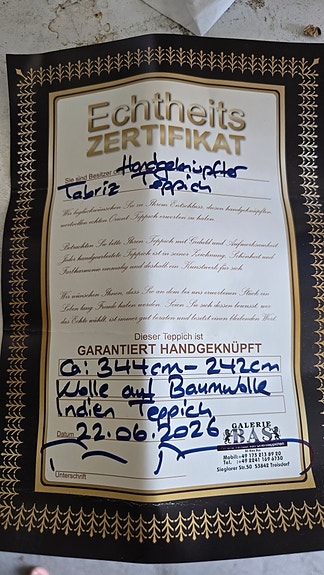 Echtheits
ZERTIFIKAT
Sie sind Besitzer Handgeknüpfter
Tabriz Teppich
Wir beglückwünschen Sie zu Ihrem Entschluss, diesen handgeknüpften,
wertvollen echten Orient-Teppich erworben zu haben.
Betrachten Sie bitte Ihren Teppich mit Geduld und Aufmerksamkeit.
Jeder handgearbeitete Teppich ist in seiner Zeichnung, Schönheit und
Farbharmonie einmalig und deshalb ein Kunstwerk für sich.
Wir wünschen Ihnen, dass Sie an dem bei uns erworbenen Stück ein
Leben lang Freude haben werden. Seien Sie sich dessen bewusst, wer
das Echte wählt, ist immer gut beraten und besitzt einen bleibenden Wert.
Dieser Teppich ist
GARANTIERT HANDGEKNÜPFT
Ca: 344cm - 242cm
Wolle auf Baumwolle
Indien Teppich
Datum 22.06.2026
GALERIE
BAS
Mobil:+49 173 213 89 20
Tel. :+49 2241 169 6730
Sieglarer Str.50 53842 Troisdorf
Unterschrift